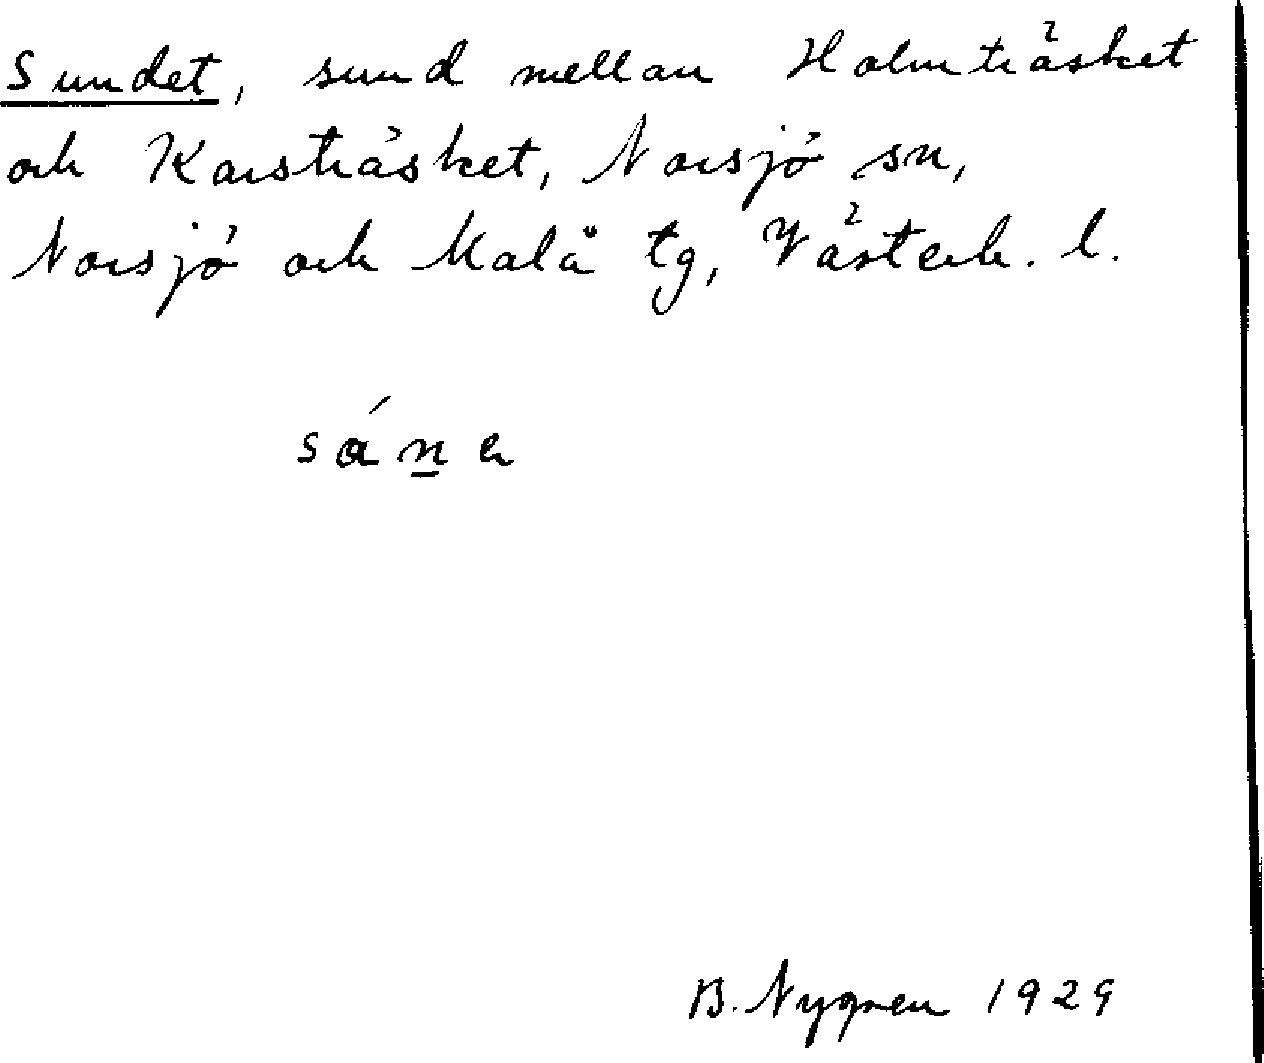 Sundet, sund mellan Holmträsket
och Karsträsket, Norsjö sn,
Norsjö och Malå tg, Västerb. l.
B. Nygren 1929